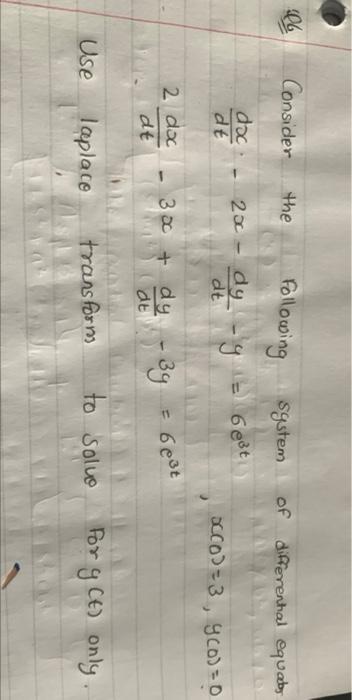 Q6 Consider the following system of differential equats
dx/dt - 2x - dy/dt - y = 6e^3t
, x(0) = 3, y(0) = 0
2 dx/dt - 3x + dy/dt - 3y = 6e^3t
Use laplace transform to solve for y(t) only.